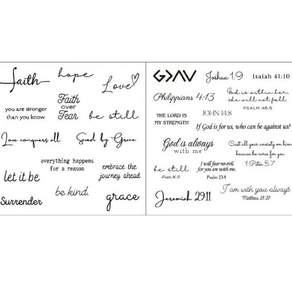 faith
hope
Love
you are
stronger
than you know
Faith
over
Fear
be still
Love conquers all
Saved by Grace
everything happens
for a reason
let it be
be still
embrace the
journey ahead
Surrender
be kind.
grace
G>∧∨
Joshua 1:9
Isaiah 41:10
Philippians 4:13
God is within her
she will not fall
PSALM 46:5
THE LORD IS
MY STRENGTH
JOHN 14:8
If God is for us, who can be against us?
God is always
with me
Cast all your anxiety on him
because he cares for you
1 Peter 5:7
be still
Psalm 46:10
I will fear no evil
for you are with me.
Psalm 23:4
Jeremiah 29:11
I am with you always
Matthew 28:20